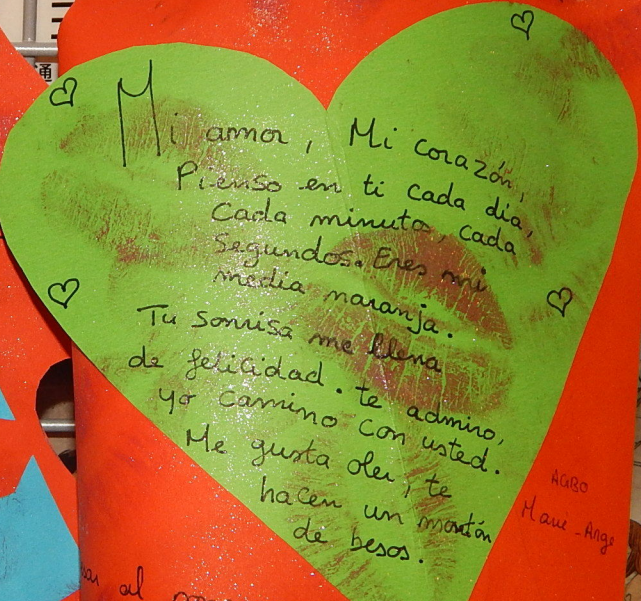 Mi amor, Mi corazón,
Pienso en ti cada día,
Cada minuto, cada
Segundos. Eres mi
media naranja.
Tu sonrisa me llena
de felicidad. te admiro,
yo camino con usted.
Me gusta oler, te
hacen un montón
de besos.
AGBO
Marie-Ange
al
通